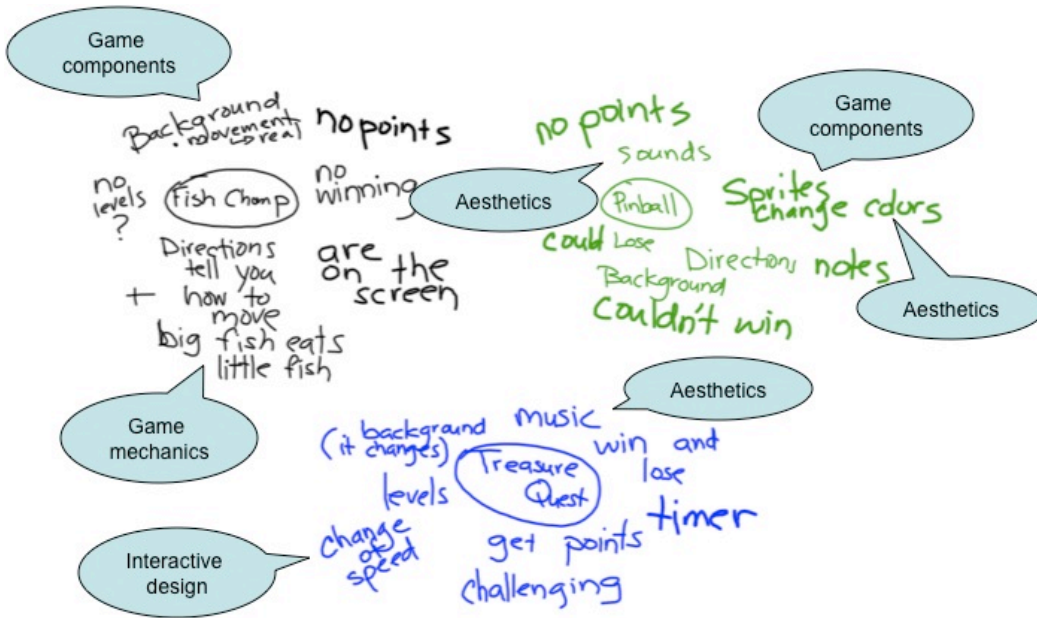 Game
components
Background
• movement → real
no points
no
levels
?
Fish Chomp
no
winning
Directions
tell you
+ how to
move
are
on the
screen
big fish eats
little fish
Game
mechanics
Aesthetics
no points
sounds
Pinball
Game
components
Sprites
change colours
could Lose
Directions notes
Background
couldn't win
Aesthetics
Aesthetics
music
background
(it changes)
win and
lose
Treasure
Quest
levels
timer
change
of
speed
get points
challenging
Interactive
design